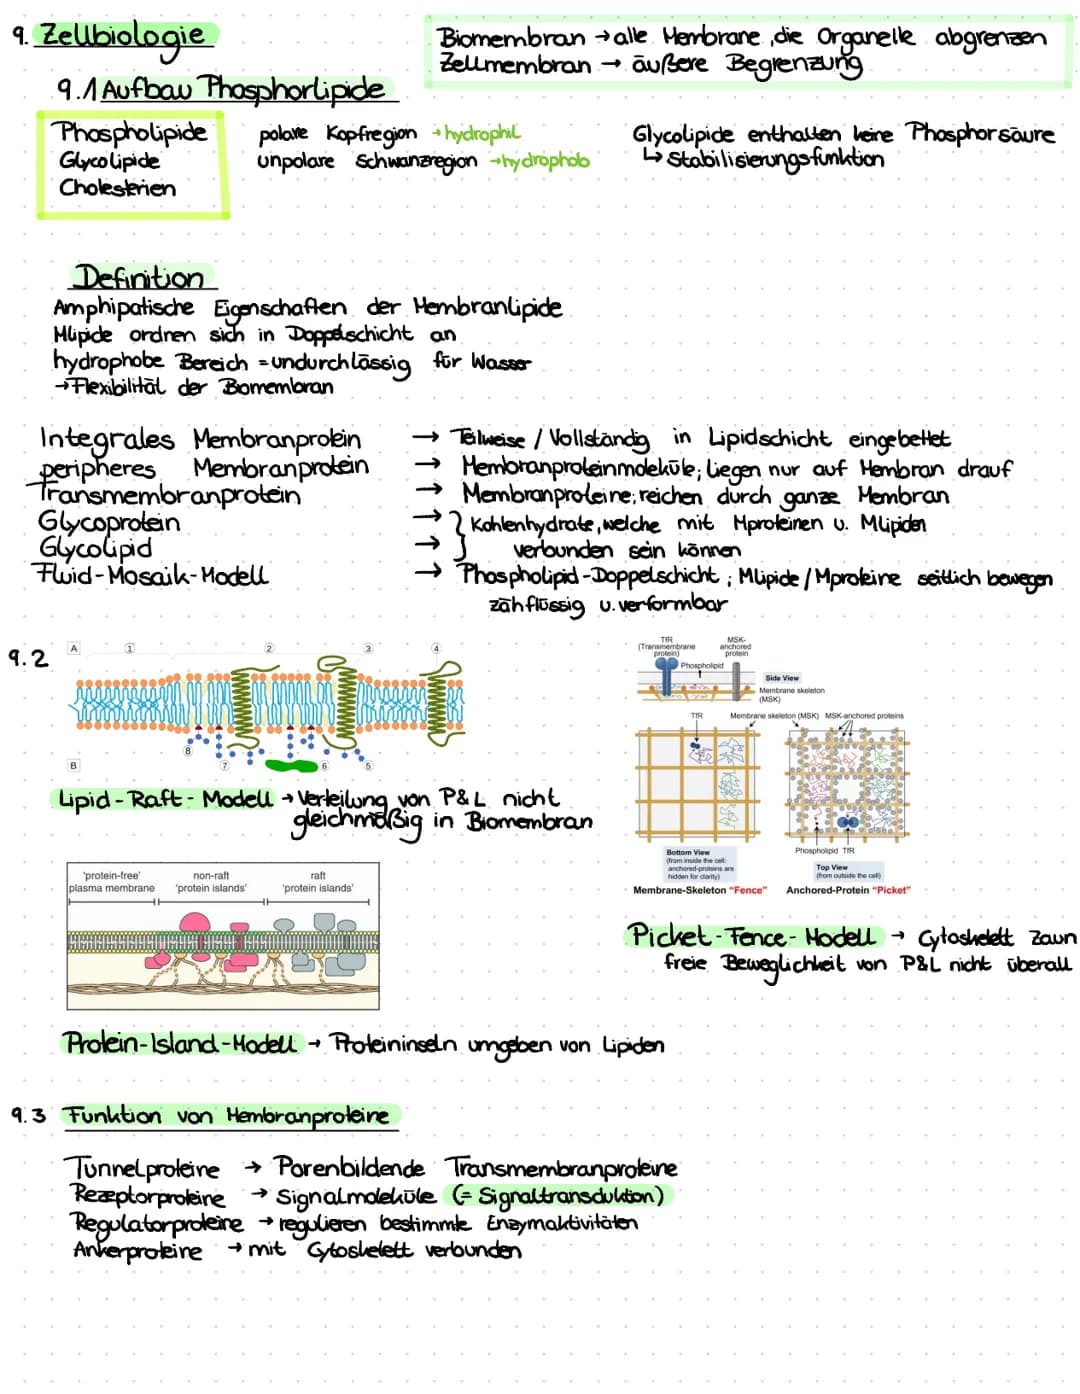 9. Zellbiologie
Biomembran → alle Membrane, die Organelle abgrenzen
Zellmembran → äußere Begrenzung
9.1 Aufbau Phosphorlipide
Phospholipide
Glycolipide
Cholesterien
polare Kopfregion → hydrophil
unpolare Schwanzregion → hydrophob
Glycolipide enthalten keine Phosphorsäure
↳ Stabilisierungsfunktion
Definition
Amphipatische Eigenschaften der Membranlipide
Mlipide ordnen sich in Doppelschicht an
hydrophobe Bereich = undurchlässig für Wasser
→ Flexibilität der Biomembran
Integrales Membranprotein → Teilweise / Vollständig in Lipidschicht eingebettet
peripheres Membranprotein → Membranproteinmoleküle; liegen nur auf Membran drauf
Transmembranprotein → Membranproteine; reichen durch ganze Membran
Glycoprotein → } Kohlenhydrate, welche mit Mproteinen u. Mlipiden
Glycolipid → verbunden sein können
Fluid-Mosaik-Modell → Phospholipid-Doppelschicht; Mlipide / Mproteine seitlich bewegen
zähflüssig u. verformbar
9.2
A 1 2 3 4
8 7 6 5
B
Lipid-Raft-Modell → Verteilung von P&L nicht
gleichmäßig in Biomembran
TfR
(Transmembrane
protein)
MSK-
anchored
protein
Phospholipid
Side View
Membrane skeleton
(MSK)
TfR
Membrane skeleton (MSK)
MSK-anchored proteins
Bottom View
(from inside the cell:
anchored-proteins are
hidden for clarity)
Membrane-Skeleton "Fence"
Phospholipid TfR
Top View
(from outside the cell)
Anchored-Protein "Picket"
'protein-free'
plasma membrane
non-raft
'protein islands'
raft
'protein islands'
Picket-Fence-Modell → Cytoskelett Zaun
freie Beweglichkeit von P&L nicht überall
Protein-Island-Modell → Proteininseln umgeben von Lipiden
9.3 Funktion von Membranproteine
Tunnelproteine → Porenbildende Transmembranproteine
Rezeptorproteine → Signalmoleküle (= Signaltransduktion)
Regulatorproteine → regulieren bestimmte Enzymaktivitäten
Ankerproteine → mit Cytoskelett verbunden